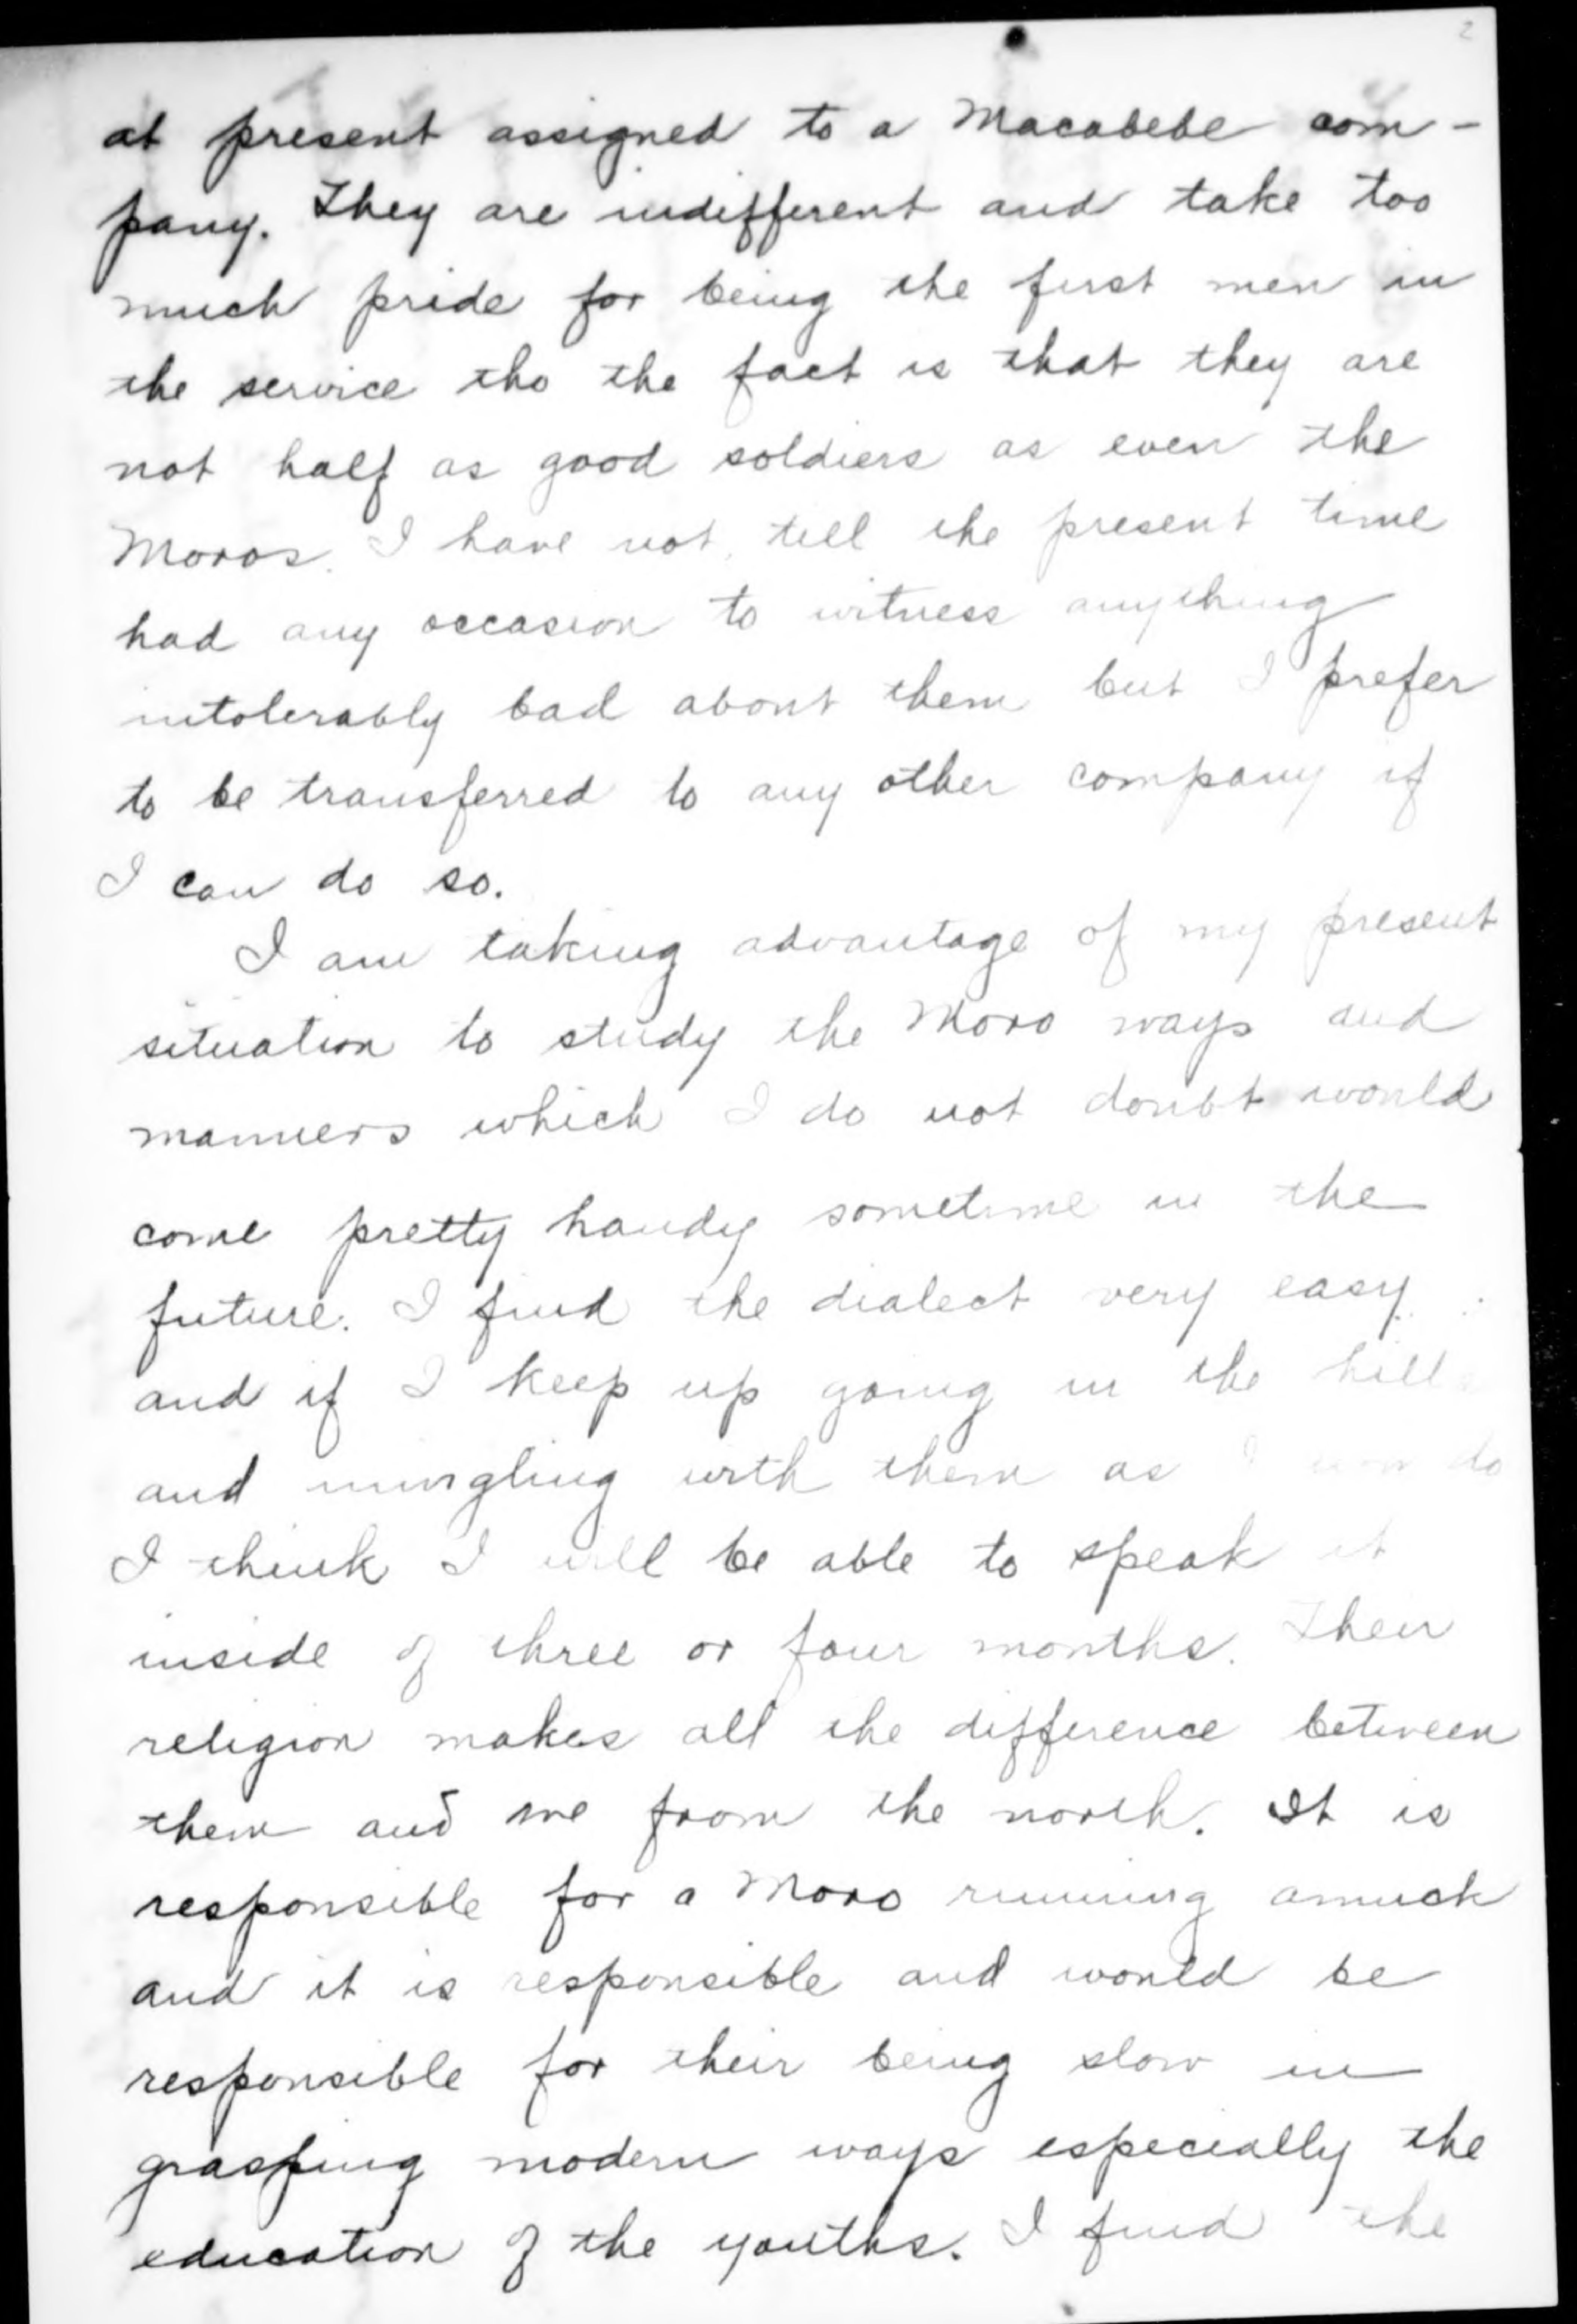 2
at present assigned to a Macabebe com-
pany. They are indifferent and take too
much pride for being the first men in
the service tho the fact is that they are
not half as good soldiers as even the
Moros. I have not, till the present time
had any occasion to witness anything
intolerably bad about them but I prefer
to be transferred to any other company if
I can do so.
I am taking advantage of my present
situation to study the Moro ways and
manners which I do not doubt would
come pretty handy sometime in the
future. I find the dialect very easy
and if I keep up going in the hills
and mingling with them as I now do
I think I will be able to speak it
inside of three or four months. Their
religion makes all the difference between
them and we from the north. It is
responsible for a Moro running amuck
and it is responsible and would be
responsible for their being slow in
grasping modern ways especially the
education of the youths. I find the